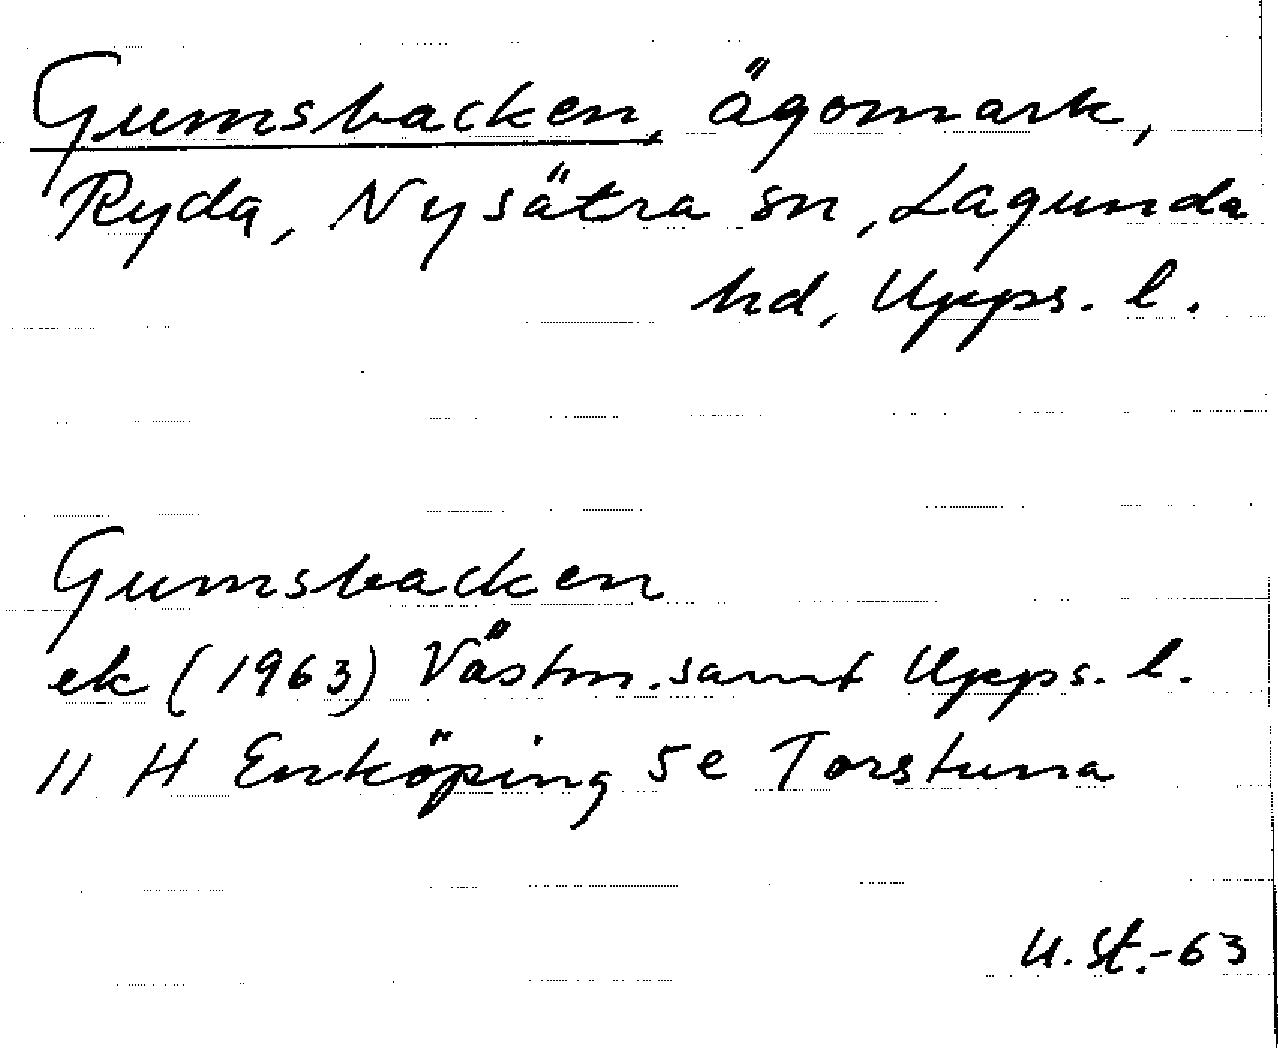 Gumsbacken, ägomark,
Ryda, Nysätra sn, Lagunda
hd, Upps. l.
Gumsbacken
ek (1963) Västm. samt Upps. l.
11 H Enköping 5e Torstuna
U. St.-63